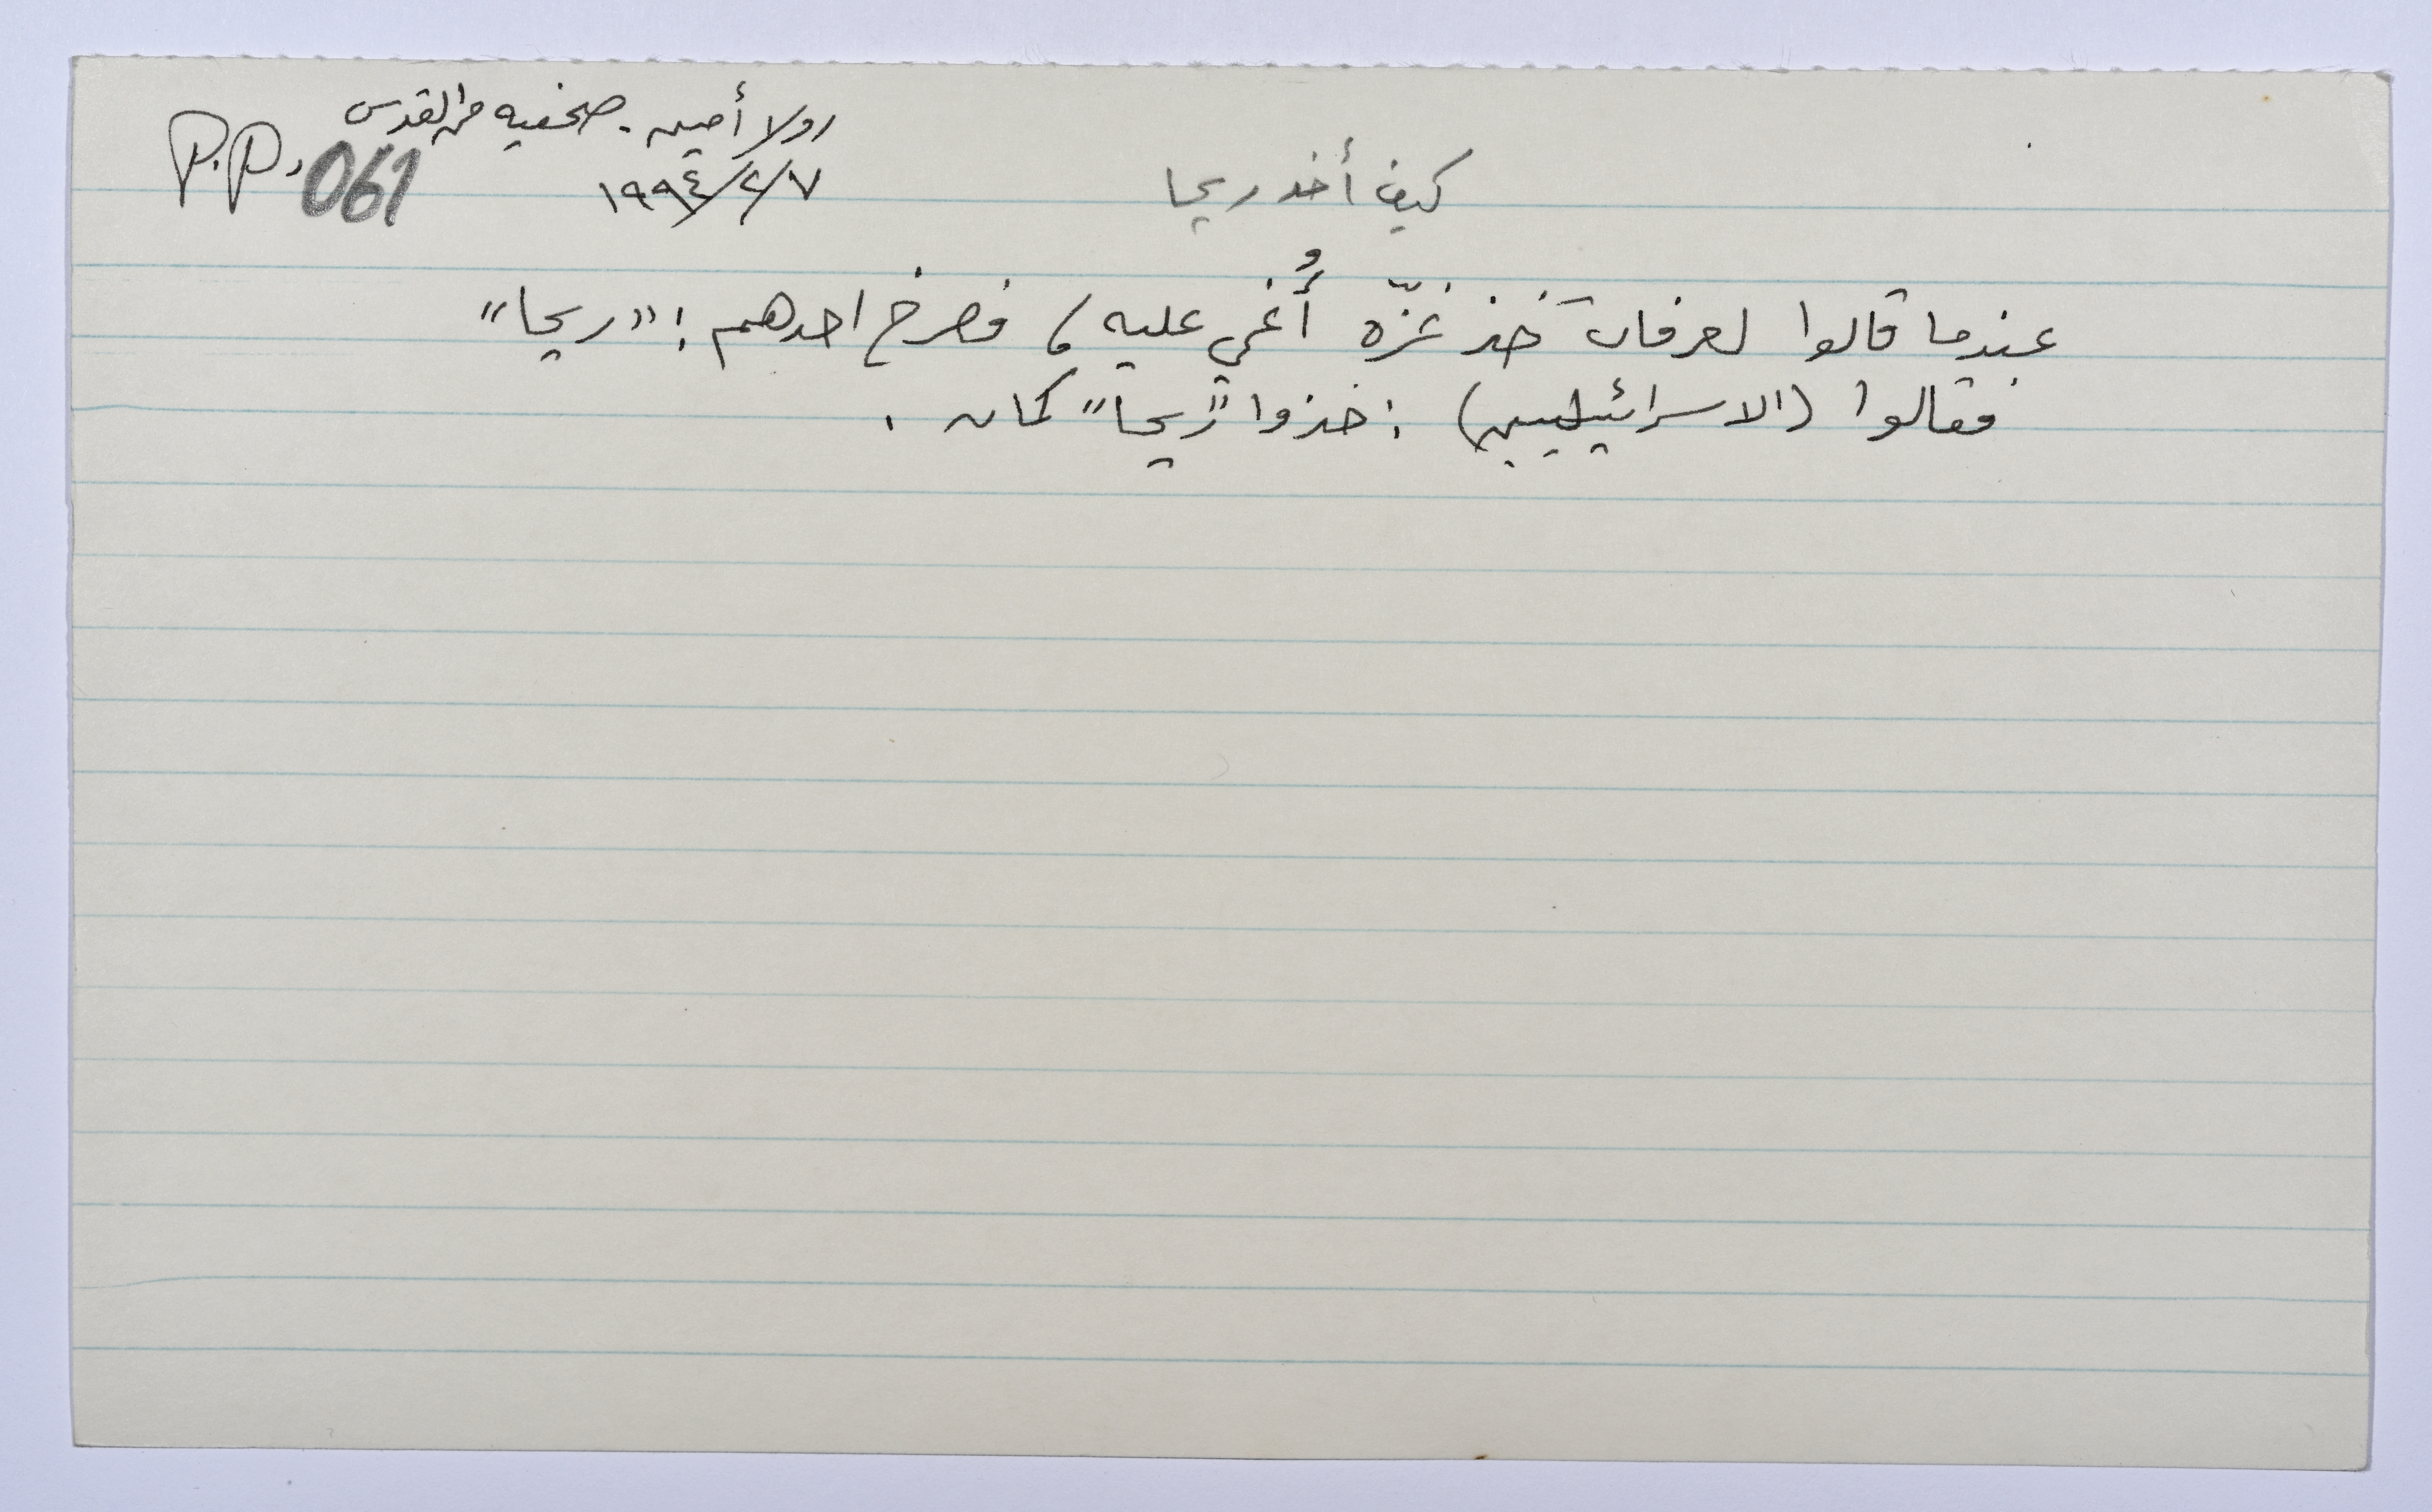 رولا أمين. صحفيه من القدس
P.P. 061
١٩٩٤/٢/٧
كيف أخذ ريحا
عندما قالوا لعرفات خذ غزّه أُغمي عليه، فصرخ احدهم: "ريحا"
فقالوا (الاسرائيليين): خذوا "ريحا" كمان.